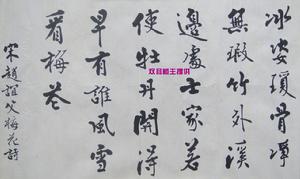 冰姿琼骨净
無瑕竹外溪
邊處士家若
使牡丹開得
早有誰風雪
看梅花
宋趙誼父梅花詩
双耳瓶王提供